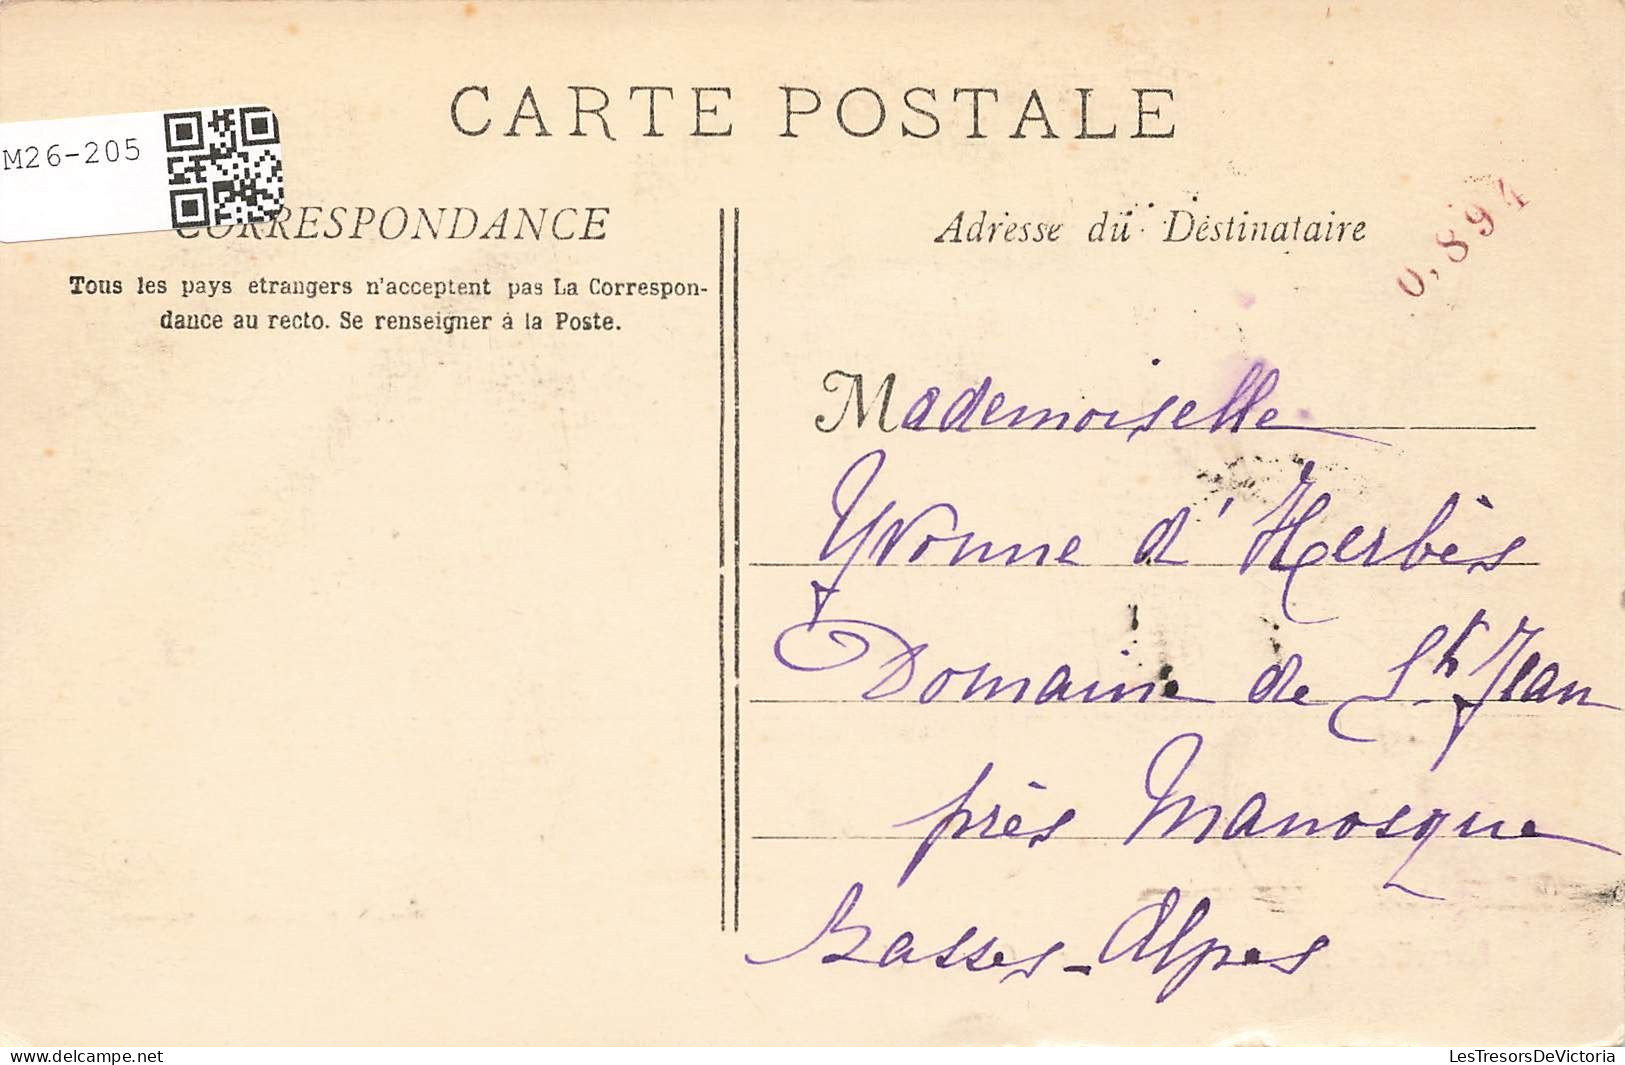 CARTE POSTALE
M26-205
CORRESPONDANCE
Tous les pays etrangers n'acceptent pas La Correspon-
dance au recto. Se renseigner à la Poste.
Adresse du Destinataire
0,894
Mademoiselle
Yvonne d'Herbès
Domaine de St Jean
près Manosque
Basses-Alpes
M26-205.jpg
LesTresorsDeVictoria